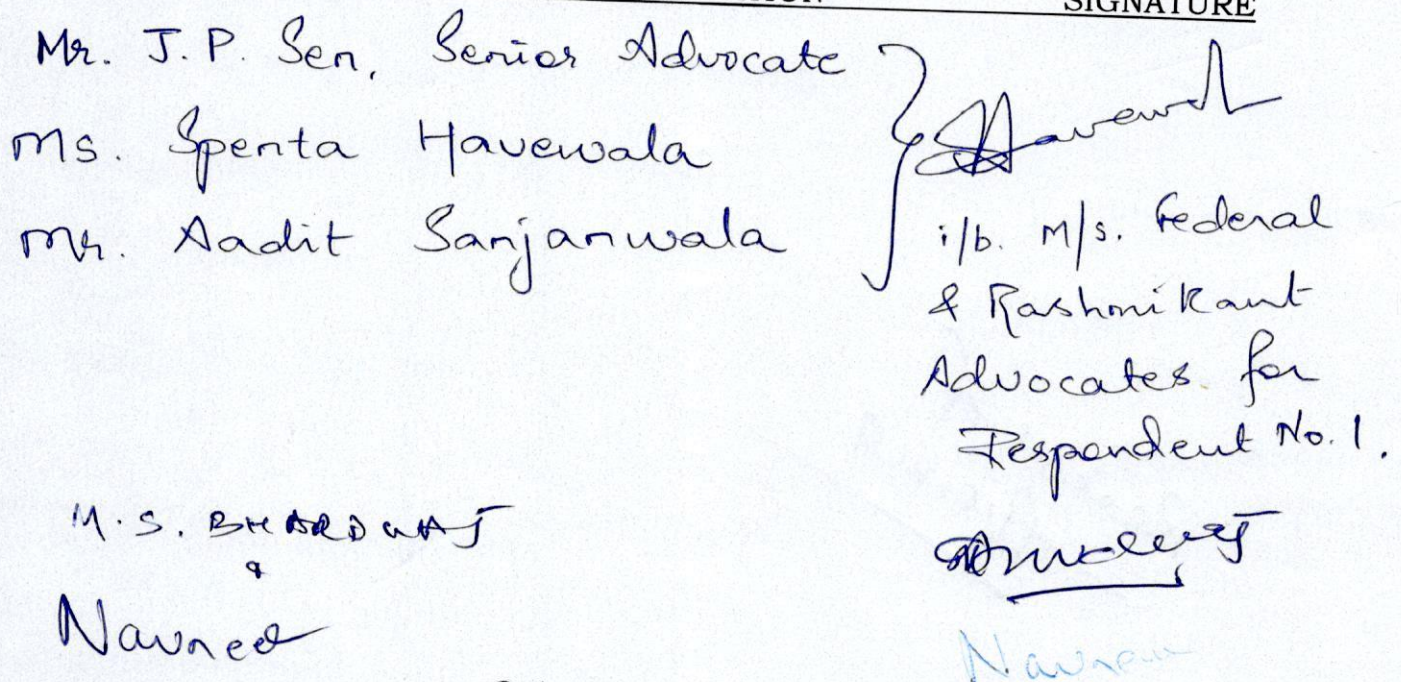 SIGNATURE
Mr. J. P. Sen, Senior Advocate
Ms. Spenta Havewala
Mr. Aadit Sanjanwala
i/b. M/s. Federal
& Rashmikant
Advocates for
Respondent No. 1.
M. S. BHARDWAJ
&
Navneet